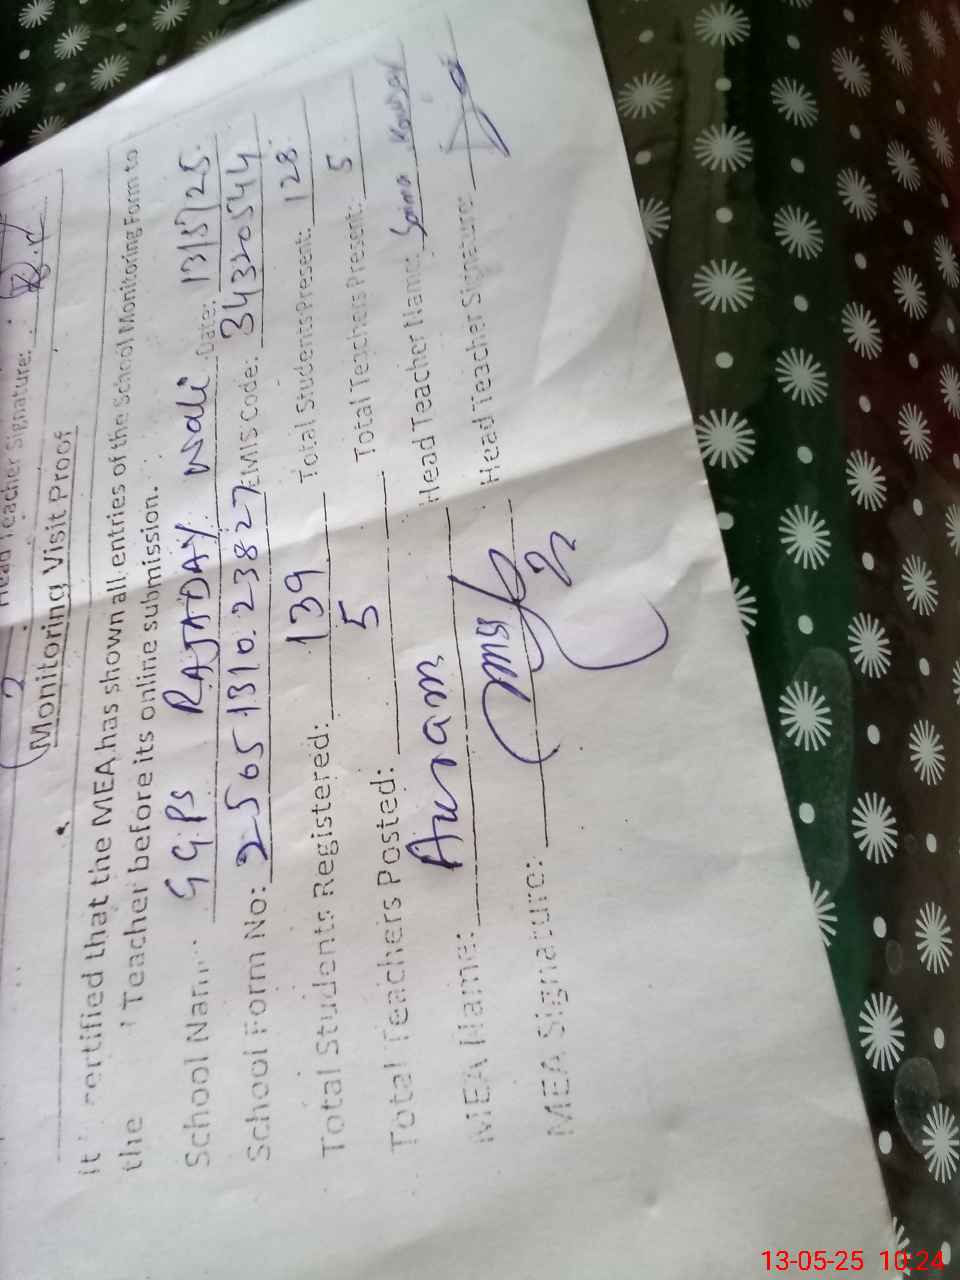 Head Teacher Signature:
(Monitoring Visit Proof
It certified that the MEA has shown all entries of the School Monitoring Form to
the / Teacher before its online submission.
School Nam GGPS RAJADAY Wali Date: 13/5/25
School Form No: 2565131023827 EMIS Code: 34320544
Total Students Registered: 139 Total Students Present: 128
Total Teachers Posted: 5 Total Teachers Present: 5
MEA Name: Head Teacher Name:
MEA Signature: Head Teacher Signature:
13-05-25 10:24